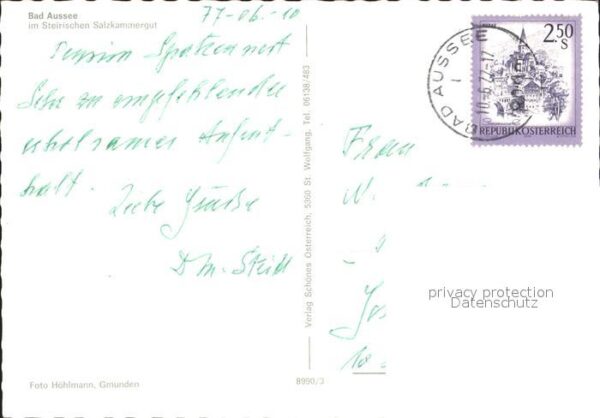 Bad Aussee
im Steirischen Salzkammergut
77-06-10
Pension Spatzennest
Sehr zu empfehlender
erholsamer Aufent-
halt.
Liebe Grüße
Verlag Schönes Österreich, 5360 St. Wolfgang, Tel. 06138/483
8990/3
Foto Höhlmann, Gmunden
2.50
S
REPUBLIK ÖSTERREICH
BAD AUSSEE
10.-6.77-17
Frau
privacy protection
Datenschutz